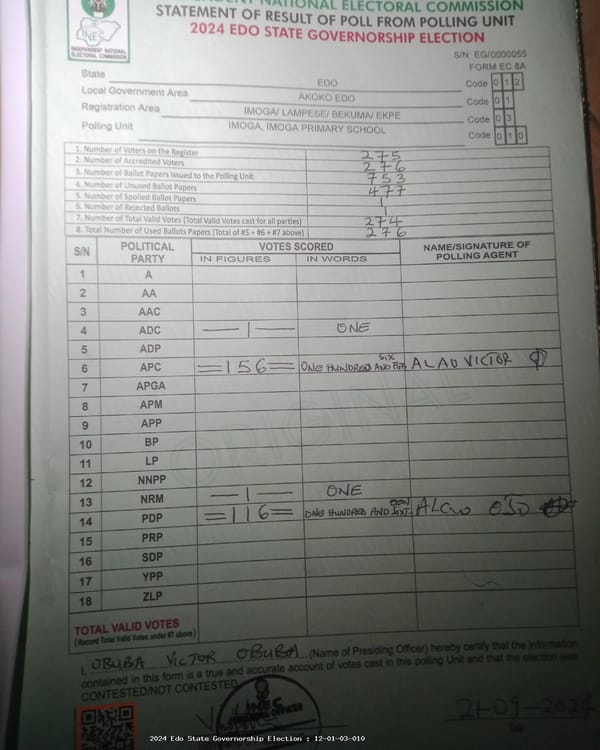 INDEPENDENT NATIONAL ELECTORAL COMMISSION
STATEMENT OF RESULT OF POLL FROM POLLING UNIT
2024 EDO STATE GOVERNORSHIP ELECTION
INEC
INDEPENDENT NATIONAL
ELECTORAL COMMISSION
S/N: EG/0000055
FORM EC 8A
State EDO Code 0 1 2
Local Government Area AKOKO EDO Code 0 1
Registration Area IMOGA/ LAMPESE/ BEKUMA/ EKPE Code 0 3
Polling Unit IMOGA, IMOGA PRIMARY SCHOOL Code 0 1 0
1. Number of Voters on the Register 275
2. Number of Accredited Voters 276
3. Number of Ballot Papers Issued to the Polling Unit 753
4. Number of Unused Ballot Papers 477
5. Number of Spoiled Ballot Papers 1
6. Number of Rejected Ballots 1
7. Number of Total Valid Votes (Total Valid Votes cast for all parties) 274
8. Total Number of Used Ballots Papers (Total of #5 + #6 + #7 above) 276
S/N POLITICAL PARTY VOTES SCORED NAME/SIGNATURE OF POLLING AGENT
IN FIGURES IN WORDS
1 A
2 AA
3 AAC
4 ADC —1— ONE
5 ADP
6 APC =156= ONE HUNDRED AND SIX ALAO VICTOR
7 APGA
8 APM
9 APP
10 BP
11 LP
12 NNPP
13 NRM —1— ONE
14 PDP =116= ONE HUNDRED AND
15 PRP
16 SDP
17 YPP
18 ZLP
TOTAL VALID VOTES
(Record Total Valid Votes under #7 above)
ORIGINAL
I, OBUBA VICTOR OBUBA (Name of Presiding Officer) hereby certify that the information
contained in this form is a true and accurate account of votes cast in this polling Unit and that the election was
CONTESTED/NOT CONTESTED
21-09-2024
2024 Edo State Governorship Election : 12-01-03-010